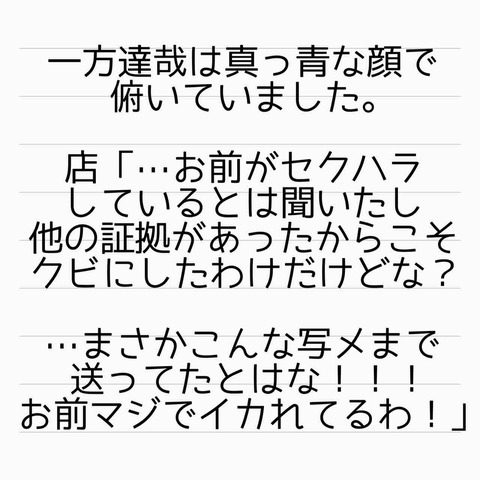 一方達哉は真っ青な顔で
俯いていました。
店「…お前がセクハラ
しているとは聞いたし
他の証拠があったからこそ
クビにしたわけだけどな？
…まさかこんな写メまで
送ってたとはな！！！
お前マジでイカれてるわ！」